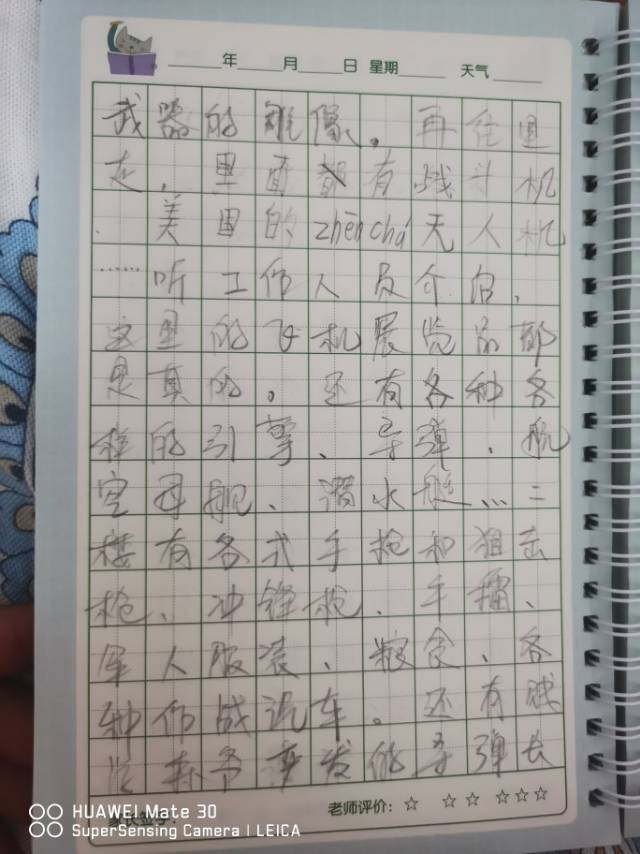 年 月 日 星期 天气
武器的雕像。再往里
走,里面都有战斗机
、美国的zhēnchá无人机
……听工作人员介绍,
这里的飞机展览品都
是真的。还有各种各
样的引擎、导弹、航
空母舰、潜水艇……二
楼有各式手枪和狙击
枪、冲锋枪、手榴、
军人服装、粮食、各
种作战汽车。还有
准备发的导弹长
老师评价:☆ ☆☆ ☆☆☆
HUAWEI Mate 30
SuperSensing Camera | LEICA